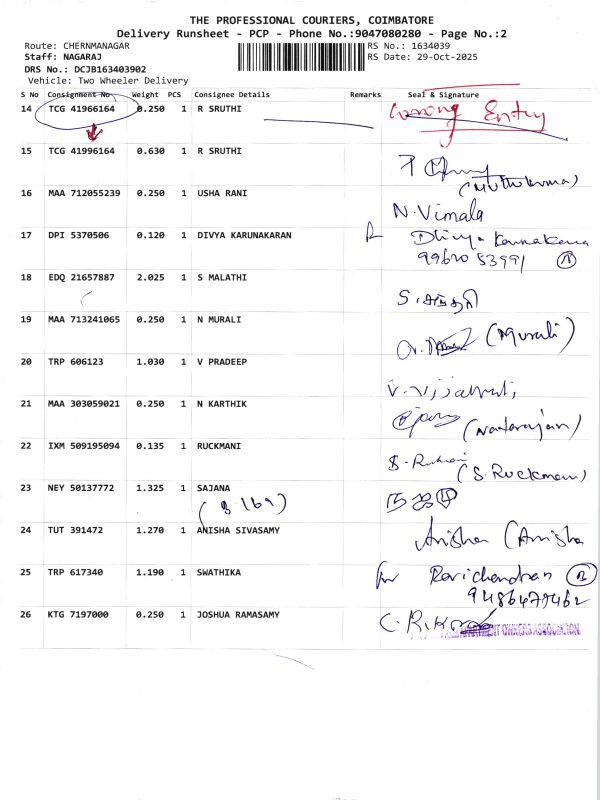 THE PROFESSIONAL COURIERS, COIMBATORE
Delivery Runsheet - PCP - Phone No.:9047080280 - Page No.:2
Route: CHERNMANAGAR RS No.: 1634039
Staff: NAGARAJ RS Date: 29-Oct-2025
DRS No.: DCJB163403902
Vehicle: Two Wheeler Delivery
S No Consignment No Weight PCS Consignee Details Remarks Seal & Signature
14 TCG 41966164 0.250 1 R SRUTHI Wrong Entry
15 TCG 41996164 0.630 1 R SRUTHI
16 MAA 712055239 0.250 1 USHA RANI N. Vimala
17 DPI 5370506 0.120 1 DIVYA KARUNAKARAN
99620 53991
18 EDQ 21657887 2.025 1 S MALATHI
19 MAA 713241065 0.250 1 N MURALI (Murali)
20 TRP 606123 1.030 1 V PRADEEP
21 MAA 303059021 0.250 1 N KARTHIK (Natarajan)
22 IXM 509195094 0.135 1 RUCKMANI
23 NEY 50137772 1.325 1 SAJANA
24 TUT 391472 1.270 1 ANISHA SIVASAMY Anisha (Anisha
25 TRP 617340 1.190 1 SWATHIKA Ravichandran
26 KTG 7197000 0.250 1 JOSHUA RAMASAMY
OWNERS ASSOCIATION